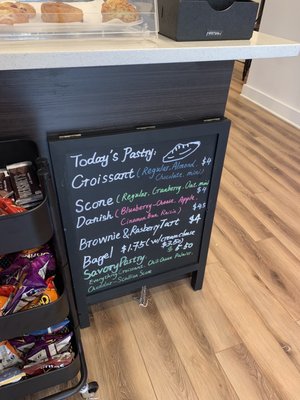 Today's Pastry:
Croissant (Regular. Almond $4
Chocolate. mini)
Scone (Regular. Cranberry. Oat. mini)
$4
Danish (Blueberry-Cheese. Apple $4
Cinnamon Bun. Raisin)
Brownie & Rasberry Tart $4
Bagel $1.75 (w/ cream cheese
$2.50)
Savory Pastry $5.50
Everything Croissant
Cheddar Scallion Scone